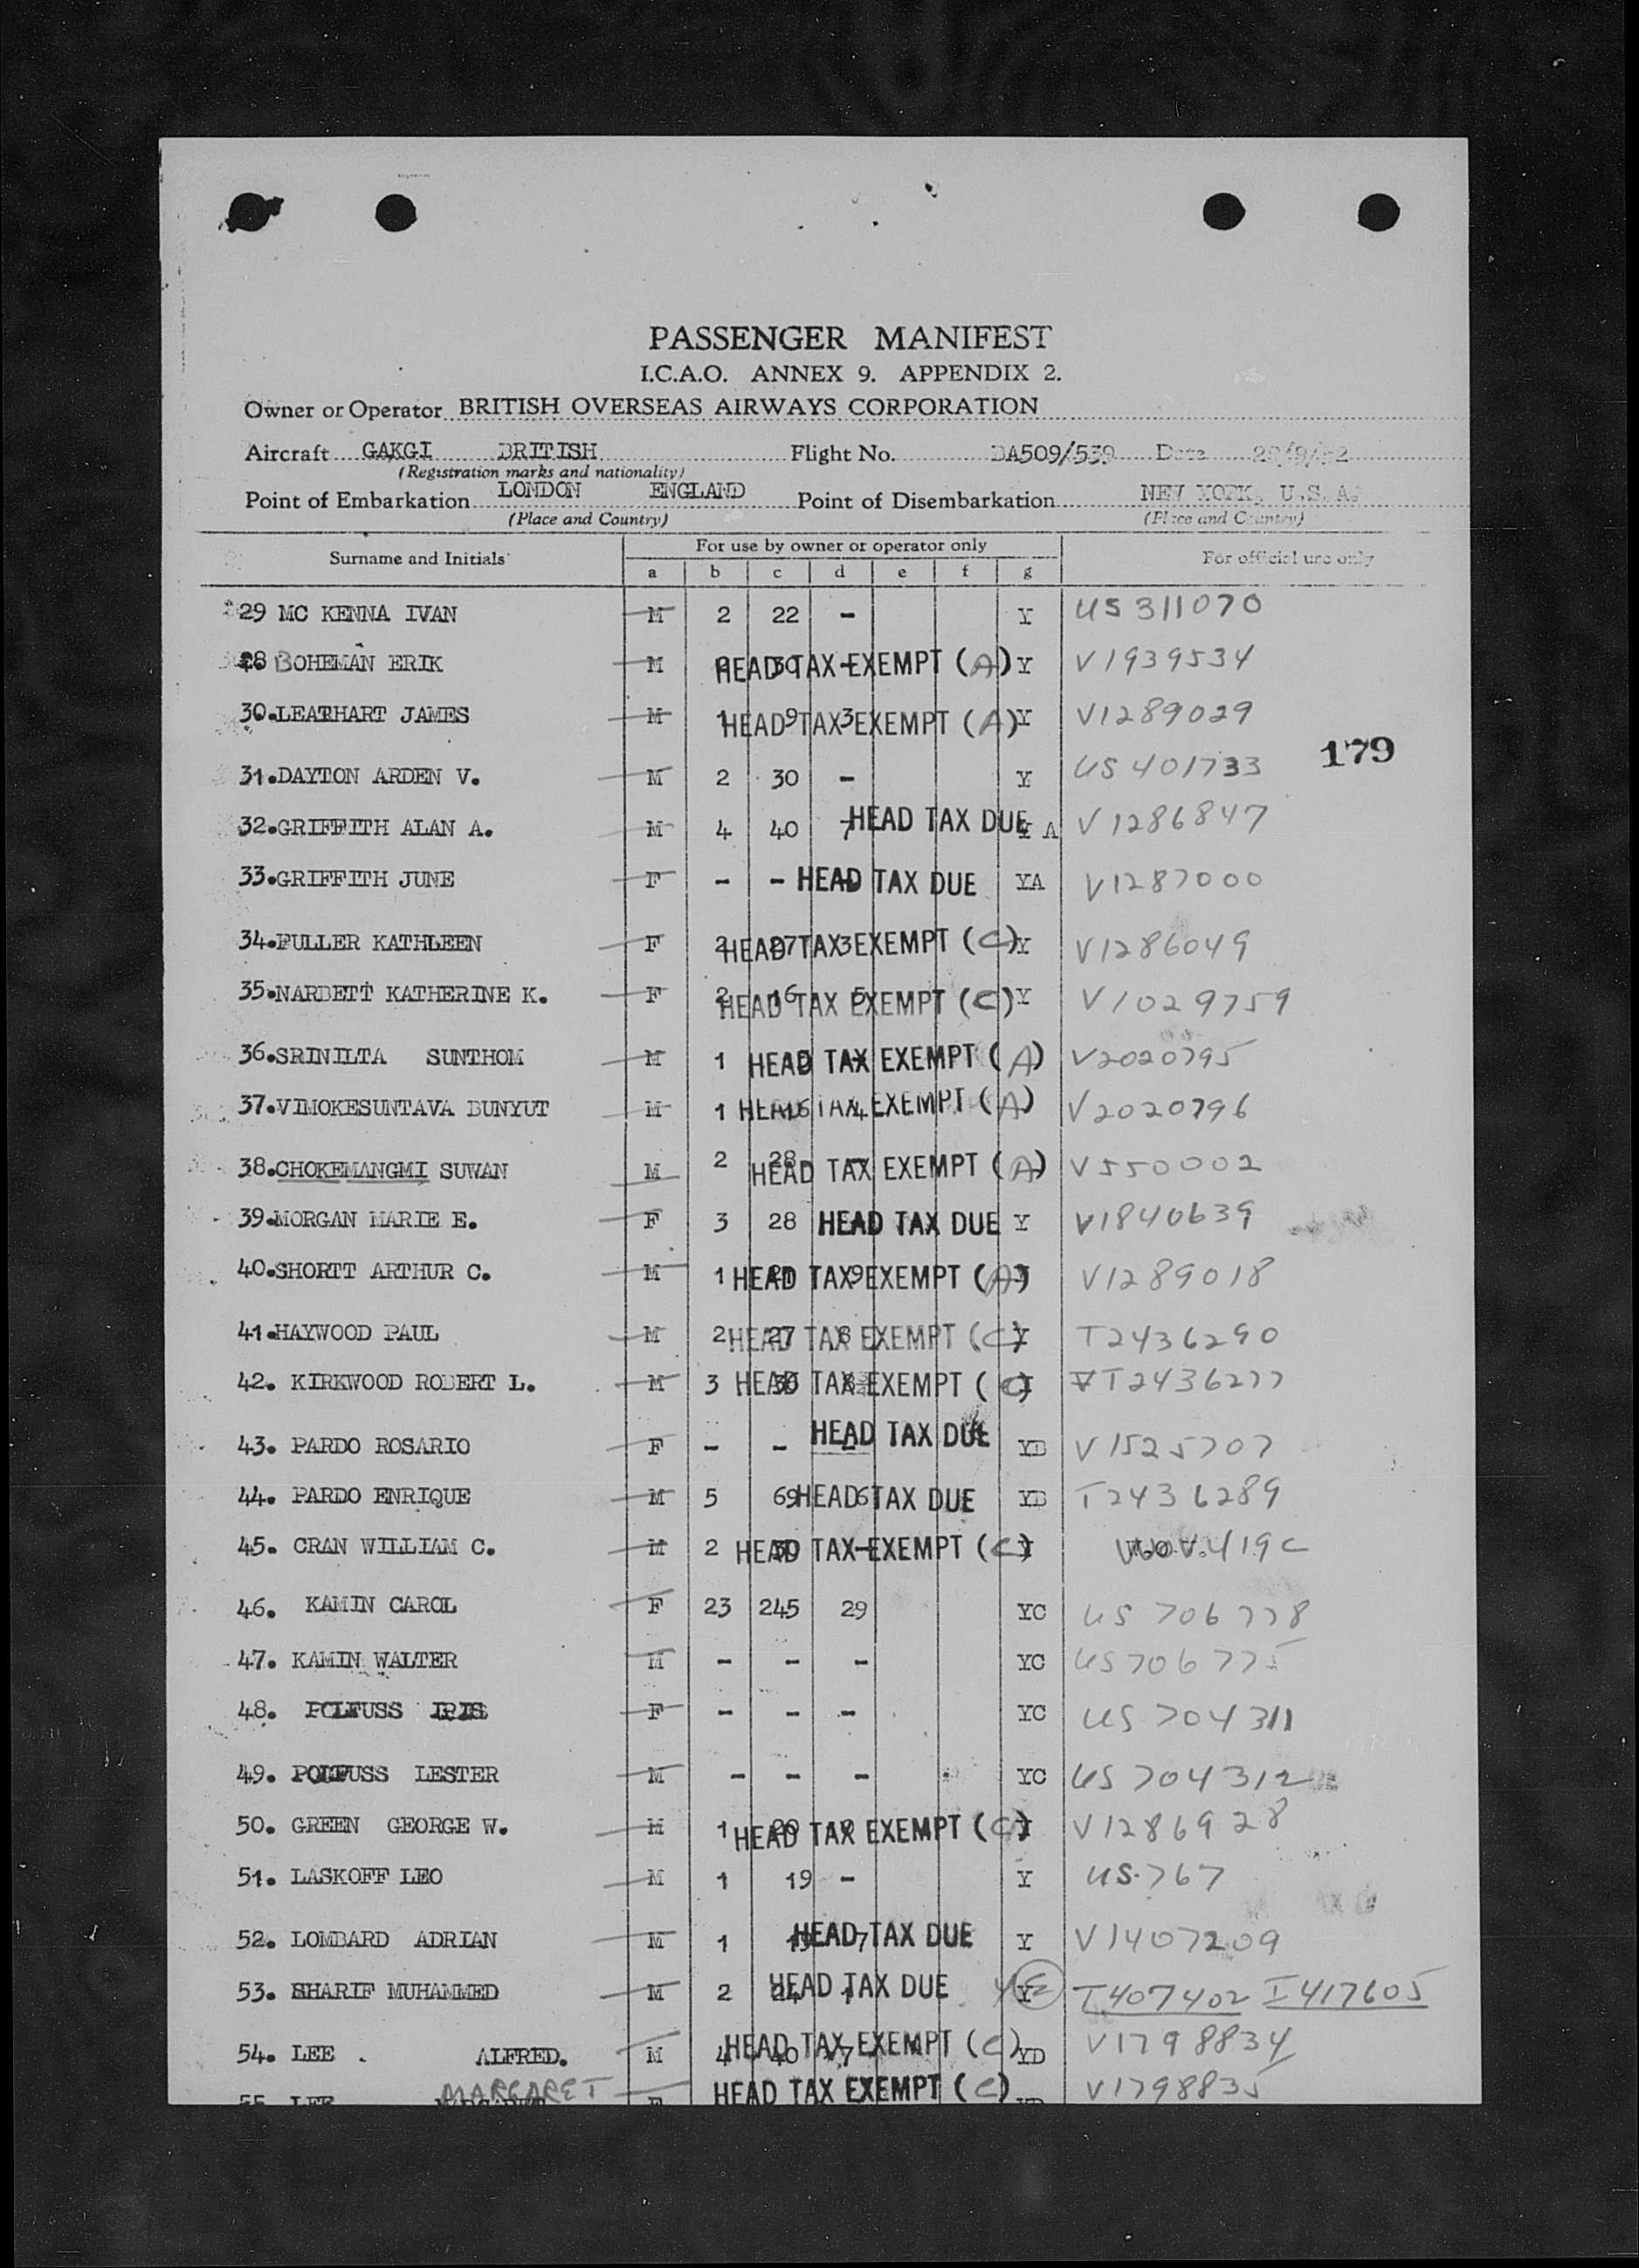 PASSENGER MANIFEST
I.C.A.O. ANNEX 9. APPENDIX 2.
Owner or Operator BRITISH OVERSEAS AIRWAYS CORPORATION
Aircraft GAKGI BRITISH Flight No. BA509/539 Date
(Registration marks and nationality)
Point of Embarkation LONDON ENGLAND Point of Disembarkation NEW YORK, U.S.A.
(Place and Country) (Place and Country)
Surname and Initials For use by owner or operator only For official use only
a b c d e f g
29 MC KENNA IVAN M 2 22 - Y US 311070
28 BOHEMAN ERIK M HEAD TAX EXEMPT (A) Y V1939534
30.LEATHART JAMES M 1 9 3 HEAD TAX EXEMPT (A) Y V1289029
179
31.DAYTON ARDEN V. M 2 30 - Y US 401733
32.GRIFFITH ALAN A. M 4 40 7 HEAD TAX DUE Y A V1286847
33.GRIFFITH JUNE F - - - HEAD TAX DUE YA V1287000
34.FULLER KATHLEEN F 2 27 3 HEAD TAX EXEMPT (C) Y V1286049
35.NARBETT KATHERINE K. F 2 16 5 HEAD TAX EXEMPT (C) Y V1029759
36.SRINILTA SUNTHOM M 1 HEAD TAX EXEMPT (A) V2020795
37.VIMOKESUNTAVA BUNYUT M 1 16 4 HEAD TAX EXEMPT (A) V2020796
38.CHOKEMANGMI SUWAN M 2 28 HEAD TAX EXEMPT (A) V550002
39.MORGAN MARIE E. F 3 28 HEAD TAX DUE Y V1840639
40.SHORTT ARTHUR C. M 1 9 HEAD TAX EXEMPT (A) Y V1289018
41.HAYWOOD PAUL M 2 27 8 HEAD TAX EXEMPT (C) Y T2436290
42. KIRKWOOD ROBERT L. M 3 30 HEAD TAX EXEMPT (C) Y T2436277
43. PARDO ROSARIO F - - - HEAD TAX DUE YB V1525707
44. PARDO ENRIQUE M 5 69 6 HEAD TAX DUE YB T2436289
45. CRAN WILLIAM C. M 2 30 - HEAD TAX EXEMPT (C) Y 419C
46. KAMIN CAROL F 23 245 29 YC US 706778
47. KAMIN WALTER M - - - YC US 706775
48. POLFUSS IRIS F - - - YC US 704311
49. POLFUSS LESTER M - - - YC US 704312
50. GREEN GEORGE W. M 1 HEAD TAX EXEMPT (C) Y V1286928
51. LASKOFF LEO M 1 19 - Y US.767
52. LOMBARD ADRIAN M 1 7 HEAD TAX DUE Y V1407209
53. SHARIF MUHAMMED M 2 24 HEAD TAX DUE Y E T407402 I417605
54. LEE ALFRED. M 4 40 7 HEAD TAX EXEMPT (C) YD V1798834
55. LEE MARGARET F HEAD TAX EXEMPT (C) V1798835